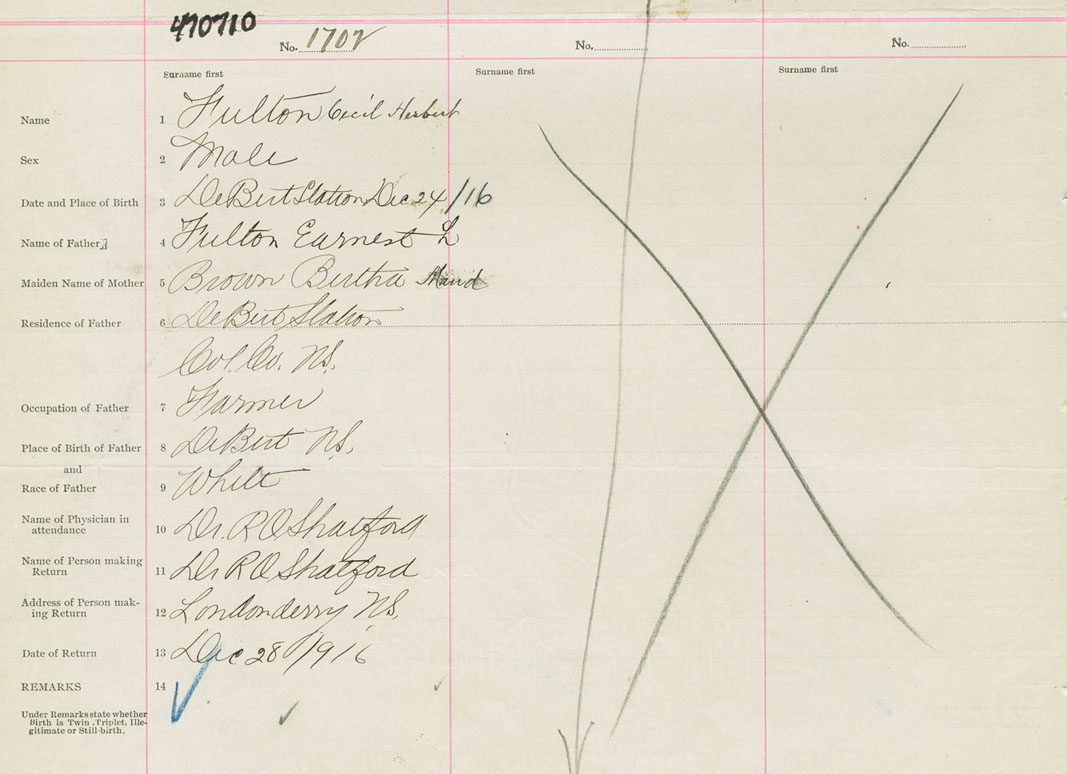 470710
No. 1702
No.
No.
Surname first
Surname first
Surname first
Name 1 Fulton Cecil Herbert
Sex 2 Male
Date and Place of Birth 3 DeBert Station Dec 24/16
Name of Father 4 Fulton Earnest L
Maiden Name of Mother 5 Brown Bertha Maud
Residence of Father 6 DeBert Station
Col. Co. N.S.
Occupation of Father 7 Farmer
Place of Birth of Father 8 DeBert N.S.
and
Race of Father 9 White
Name of Physician in
attendance 10 Dr. R O Shatford
Name of Person making
Return 11 Dr R O Shatford
Address of Person mak-
ing Return 12 Londonderry N.S.
Date of Return 13 Dec 28/1916
REMARKS 14
Under Remarks state whether
Birth is Twin, Triplet, Ille-
gitimate or Still-birth.